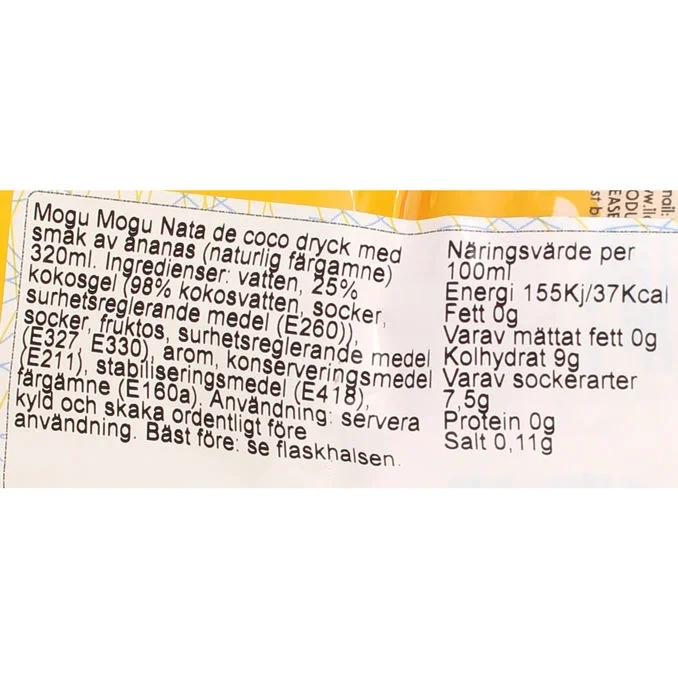 Mogu Mogu Nata de coco dryck med
smak av ananas (naturlig färgämne)
320ml. Ingredienser: vatten, 25%
kokosgel (98% kokosvatten, socker,
surhetsreglerande medel (E260)),
socker, fruktos, surhetsreglerande medel
(E327, E330), arom, konserveringsmedel
(E211), stabiliseringsmedel (E418),
färgämne (E160a). Användning: servera
kyld och skaka ordentligt före
användning. Bäst före: se flaskhalsen.
Näringsvärde per
100ml
Energi 155Kj/37Kcal
Fett 0g
Varav mättat fett 0g
Kolhydrat 9g
Varav sockerarter
7,5g
Protein 0g
Salt 0,11g